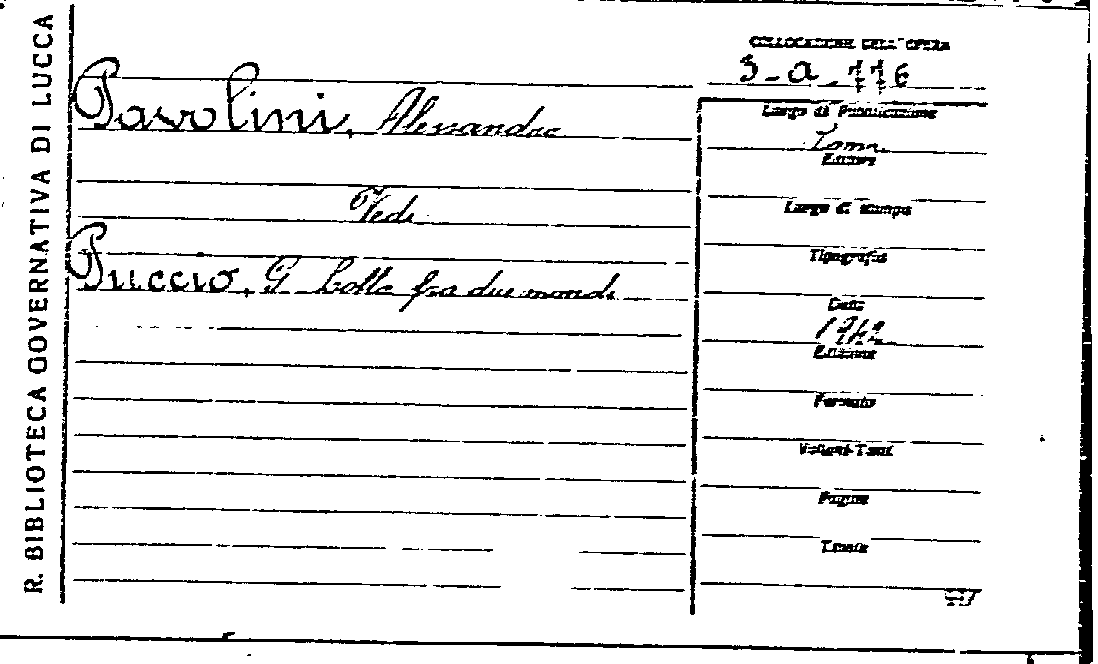 R. BIBLIOTECA GOVERNATIVA DI LUCCA
COLLOCAZIONE DELL'OPERA
3-a-116
Pavolini, Alessandro
Vedi
Puccio, G. Lotta fra due mondi
Luogo di Pubblicazione
Roma
Editore
Luogo di stampa
Tipografia
Data
1942
Edizione
Formato
Volumi-Tomi
Pagine
Tavole